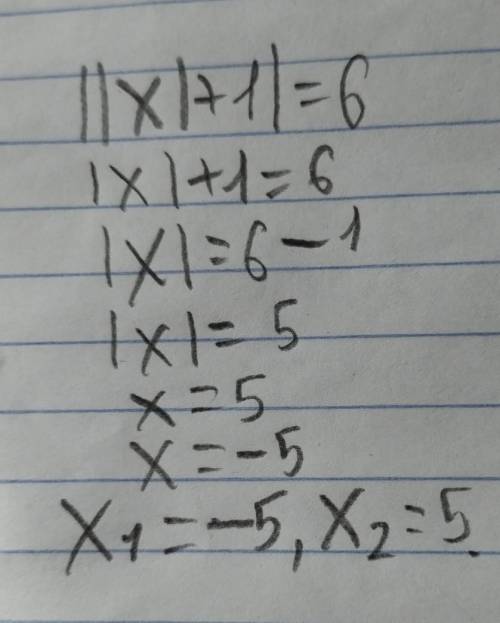 ||x|+1|=6
|x|+1=6
|x|=6-1
|x|=5
x=5
x=-5
x₁=-5, x₂=5.